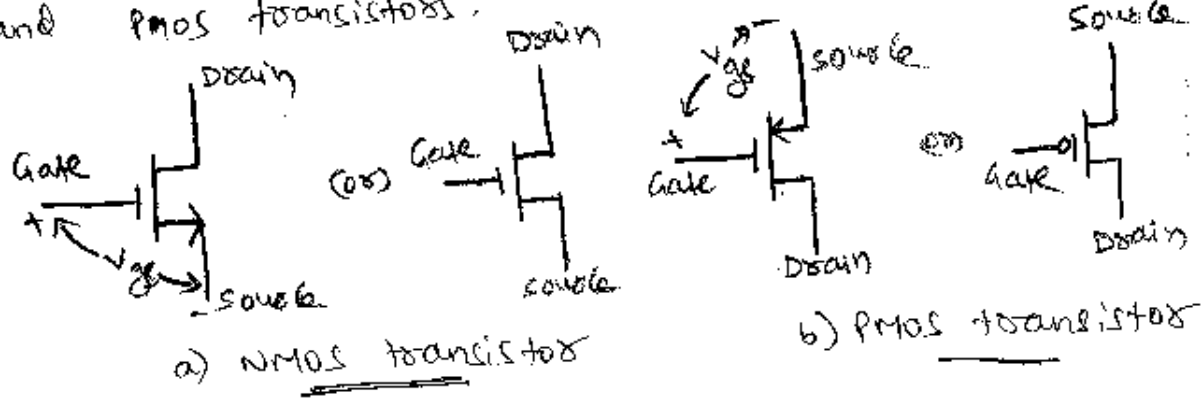 and PMOS transistors.
Drain
Gate
+
Vgs
- Source
(or)
Drain
Gate
Source
a) NMOS transistor
-
Source
Vgs
+
Gate
Drain
(or)
Source
Gate
Drain
b) PMOS transistor